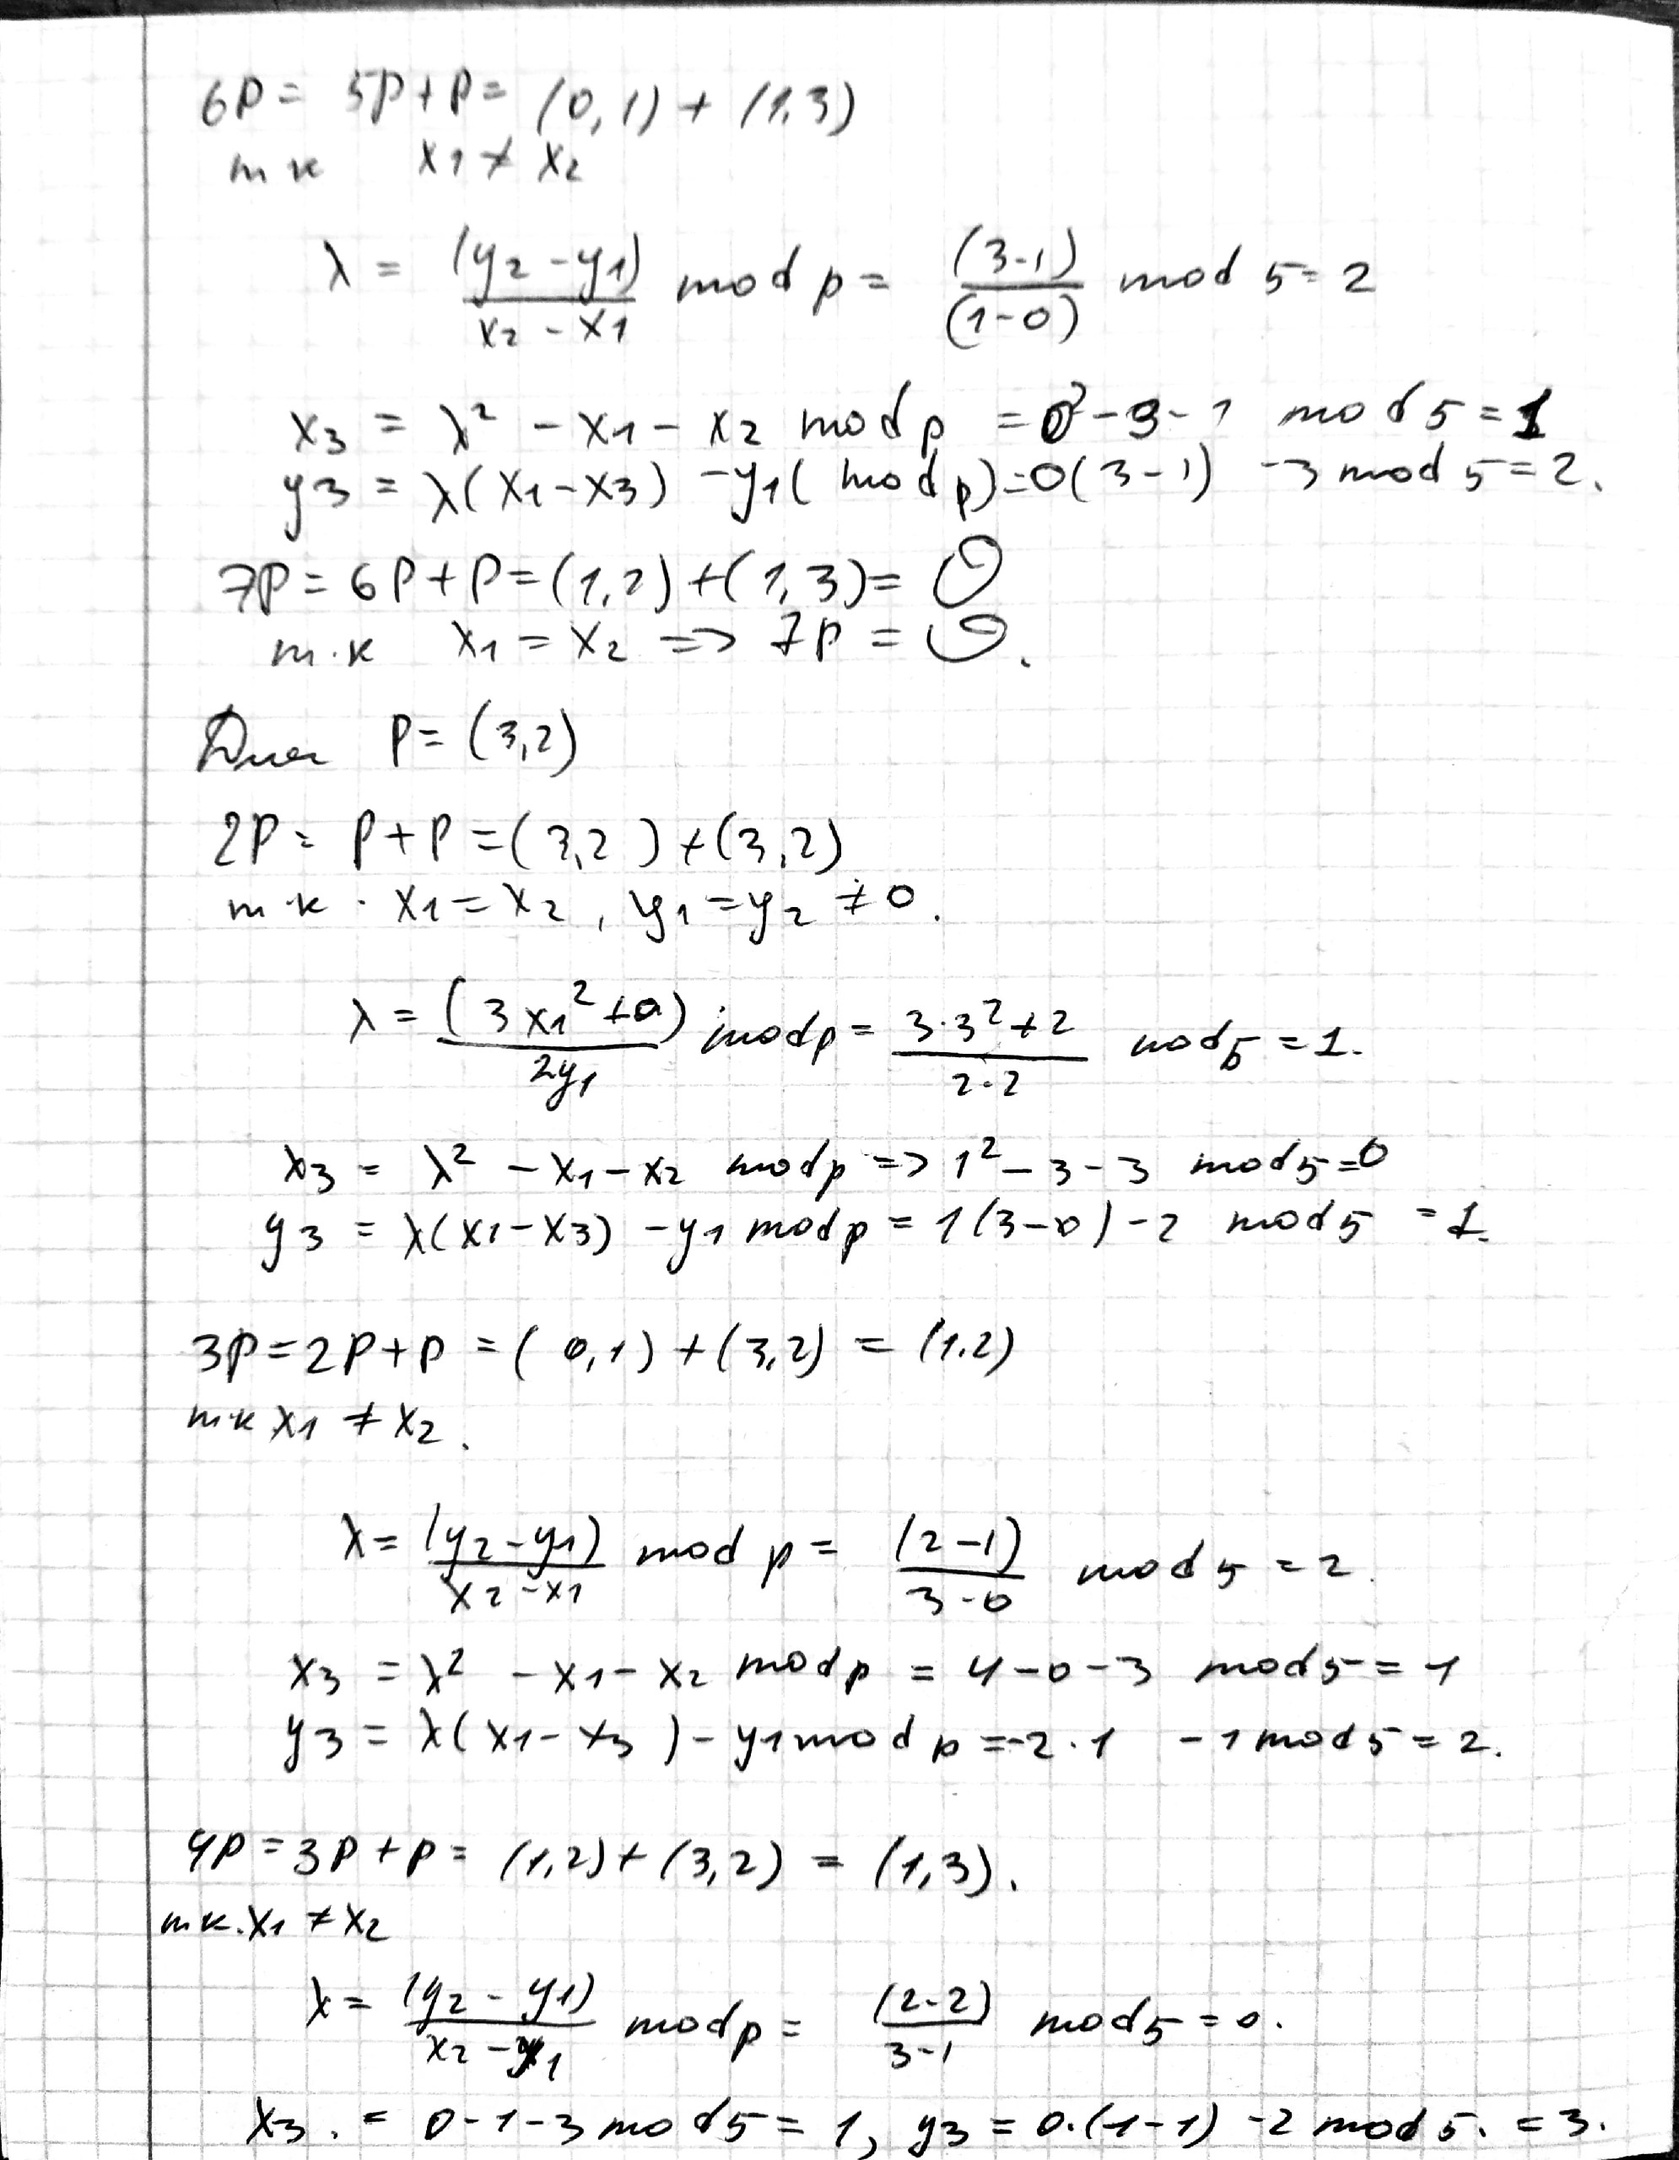 6P = 5P + P = (0,1) + (1,3)
т к x1 ≠ x2
λ = (y2 - y1) / (x2 - x1) mod p = (3-1) / (1-0) mod 5 = 2
x3 = λ² - x1 - x2 mod p = 0² - 3 - 1 mod 5 = 1
y3 = λ(x1 - x3) - y1 ( mod p) = 0(3-1) - 3 mod 5 = 2.
7P = 6P + P = (1,2) + (1,3) = O
т.к x1 = x2 => 7P = O.
Для P = (3,2)
2P = P + P = (3,2) + (3,2)
т к . x1 = x2, y1 = y2 ≠ 0.
λ = (3x1² + a) / 2y1 mod p = 3·3² + 2 / 2·2 mod 5 = 1.
x3 = λ² - x1 - x2 mod p => 1² - 3 - 3 mod 5 = 0
y3 = λ(x1 - x3) - y1 mod p = 1(3-0) - 2 mod 5 = 1.
3P = 2P + P = (0,1) + (3,2) = (1.2)
т к x1 ≠ x2.
λ = (y2 - y1) / (x2 - x1) mod p = (2-1) / 3-0 mod 5 = 2.
x3 = λ² - x1 - x2 mod p = 4 - 0 - 3 mod 5 = 1
y3 = λ(x1 - x3) - y1 mod p = -2·1 - 1 mod 5 = 2.
4P = 3P + P = (1,2) + (3,2) = (1,3).
т к. x1 ≠ x2
λ = (y2 - y1) / (x2 - x1) mod p = (2-2) / 3-1 mod 5 = 0.
x3. = 0 - 1 - 3 mod 5 = 1, y3 = 0.(1-1) - 2 mod 5. = 3.